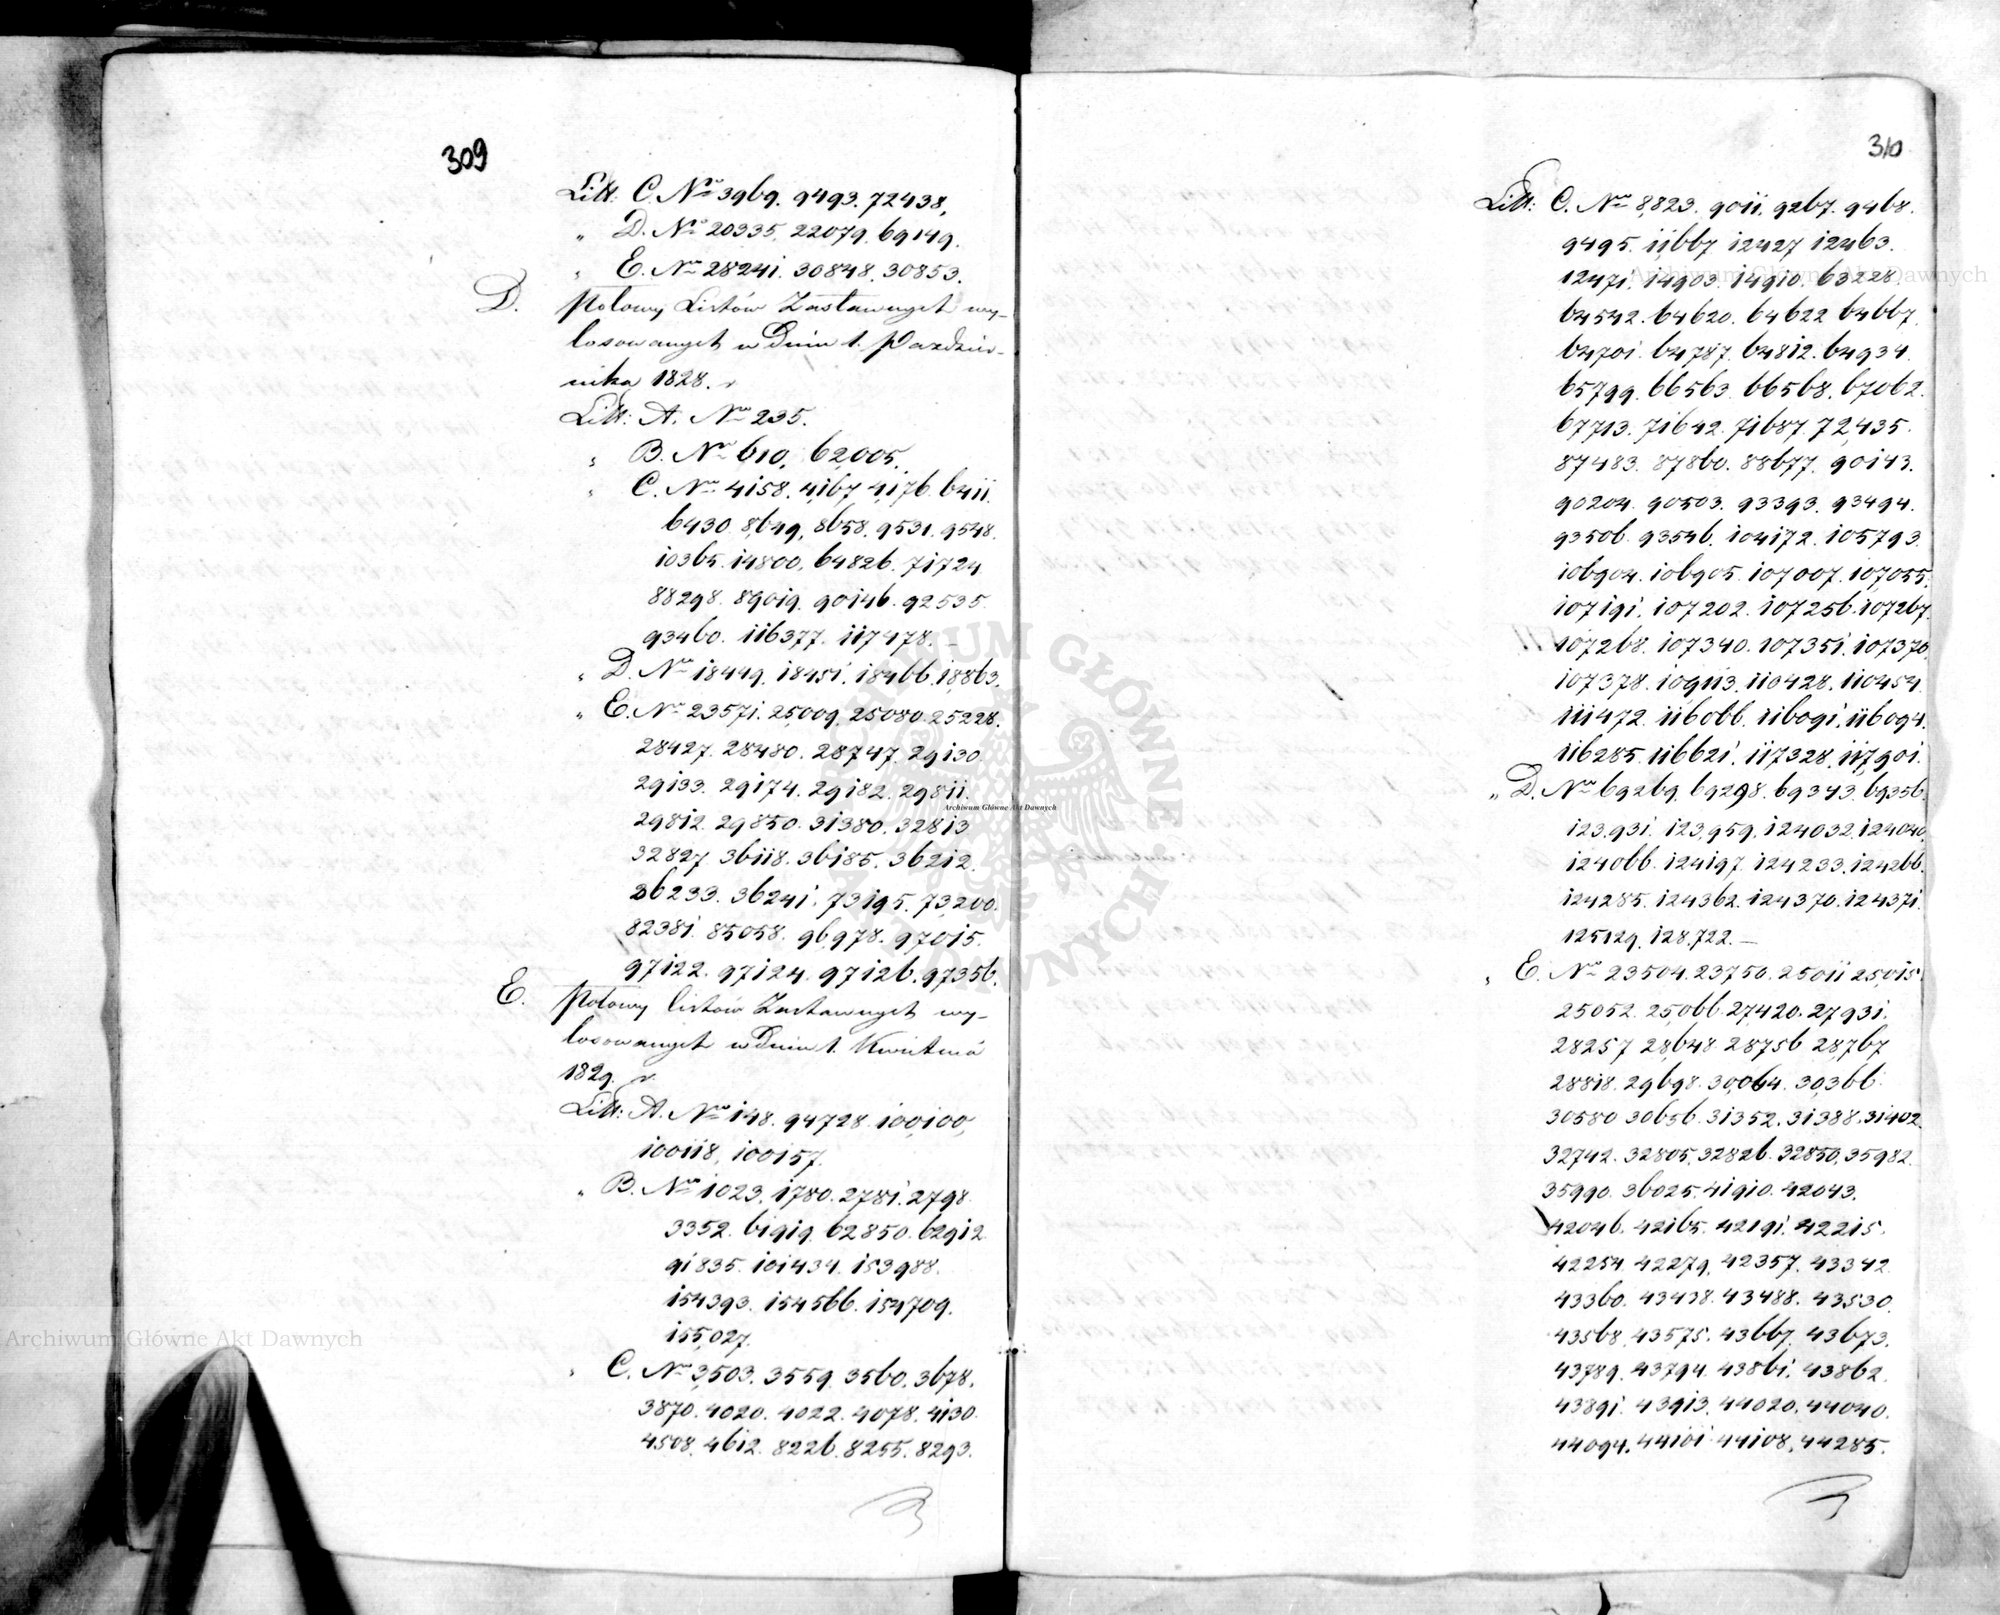 309
Litt: C. Nro 3969. 9493. 72438,
„ D. Nro 20335. 22079. 69149.
„ E. Nro 28241. 30848. 30853.
D. Połowy Listów Zastawnych wy-
losowanych w Dniu 1. Paździer-
nika 1828. r
Litt: A. Nro 235.
„ B. Nro 610. 62,005.
„ C. Nro 4158. 4167. 4176. 6411.
6430. 8649. 8658. 9531. 9548.
10365. 14800. 64826. 71724
88298. 89019. 90146. 92535.
93460. 116377. 117478. —
„ D. Nro 18449. 18451. 18466. 18863.
„ E. Nro 23571. 25009. 25080. 25228.
28427. 28480. 28747. 29130.
29133. 29174. 29182. 29811.
29812. 29850. 31380. 32813
32827. 36118. 36185. 36212.
36233. 36241. 73195. 73200.
82381. 85058. 96978. 97015.
97122. 97124. 97126. 97356.
E. Połowy listów Zastawnych wy-
losowanych w Dniu 1. Kwietnia
1829. r.
Litt: A. Nro 148. 94728. 100,100,
100118, 100157.
„ B. Nro 1023. 1780. 2781. 2798.
3352. 61919. 62850. 62912.
91835. 101434. 153988.
154393. 154566. 154709.
155,027.
„ C. Nro 3,503. 3559. 3560. 3678.
3870. 4020. 4022. 4078. 4130.
4508. 4612. 8226. 8255. 8293.
310
Litt: C. Nro 8,823. 9011. 9267. 9468.
9495. 11667. 12427. 12463.
12471. 14903. 14910. 63228.
64542. 64620. 64622. 64667.
64701. 64787. 64812. 64934.
65799. 66563. 66568. 67062.
67713. 71642. 71687. 72,435.
87483. 87860. 88677. 90143.
90204. 90503. 93393. 93494.
93506. 93546. 104172. 105793.
106904. 106905. 107007. 107,055.
107191. 107202. 107256. 107267.
107268. 107340. 107351. 107370.
107378. 109113. 110428. 110454.
111472. 116066. 116091. 116094.
116285. 116621. 117328. 117,901.
„ D. Nro 69269. 69298. 69343. 69356.
123,931. 123,959. 124032. 124040.
124066. 124197. 124233. 124266.
124285. 124362. 124370. 124371.
125129. 128,722. —
„ E. Nro 23504. 23750. 25011. 25,015.
25052. 25,066. 27,420. 27931.
28257. 28,648. 28756. 28,767
28818. 29698. 30,064. 30,366.
30580. 30656. 31352. 31388. 31402.
32742. 32805. 32826. 32850. 35982.
35990. 36025. 41910. 42043.
42046. 42165. 42191. 42215.
42254. 42279. 42357. 43342.
43360. 43438. 43488. 43530.
43568. 43575. 43667. 43673.
43789. 43794. 43861. 43862.
43891. 43913. 44020. 44040.
44094. 44101. 44108. 44285.
Archiwum Główne Akt Dawnych
Archiwum Główne Akt Dawnych
Archiwum Główne Akt Dawnych
ARCHIWUM GŁÓWNE AKT DAWNYCH